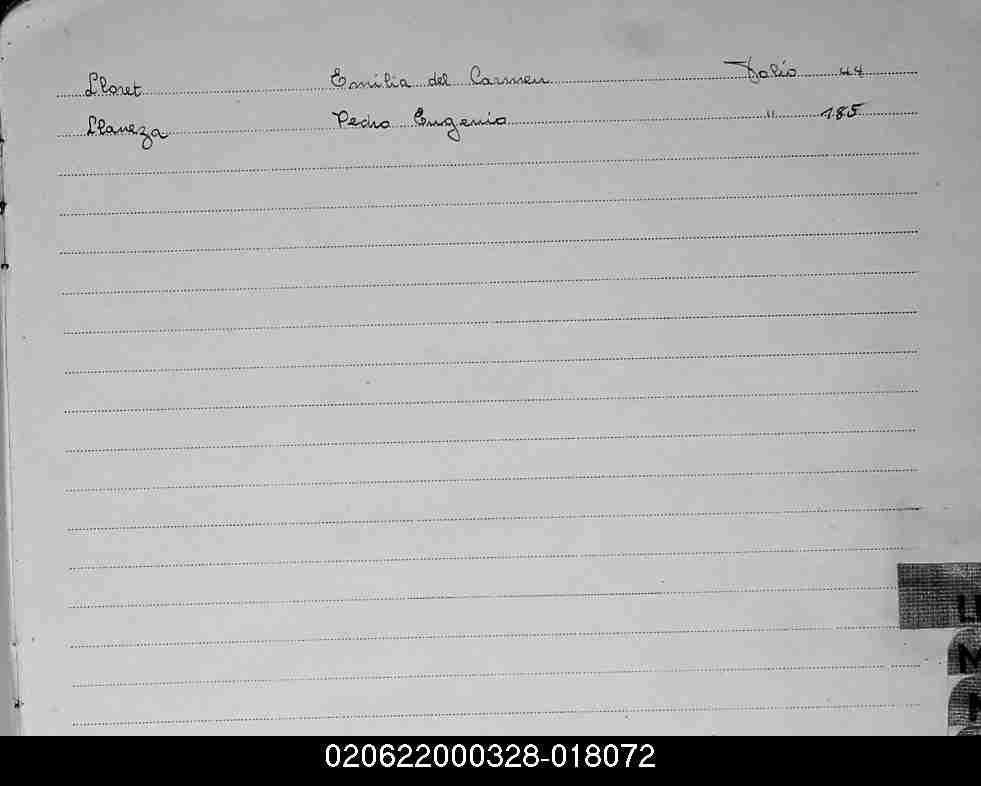 Lloret Emilia del Carmen Folio 44
Llaneza Pedro Eugenio " 185
LL
M
N
020622000328-018072